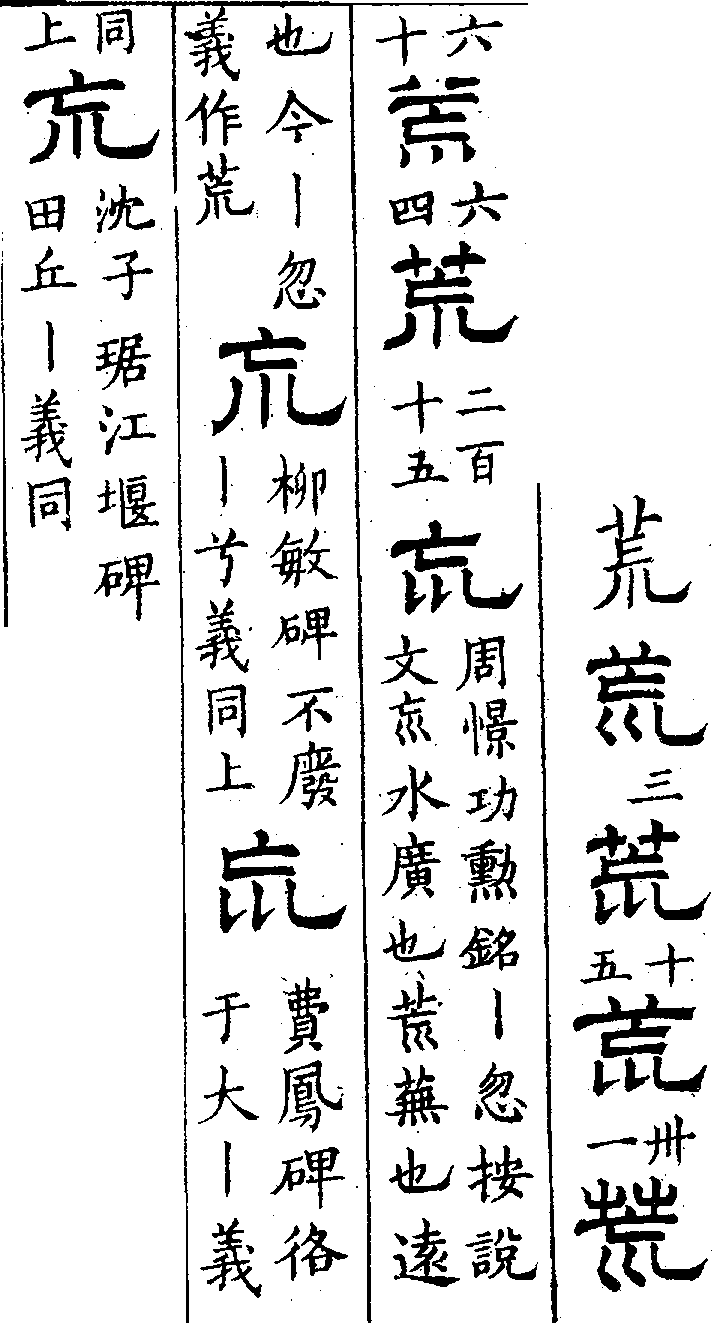 荒荒三荒十五荒卅一荒
六十荒六四荒二百十五巟周憬功勲銘丨忽按說文巟水廣也荒蕪也遠
也今丨忽義作荒巟柳敏碑不廢丨兮義同上巟費鳳碑佫于大丨義
同上巟沈子琚江堰碑田丘丨義同